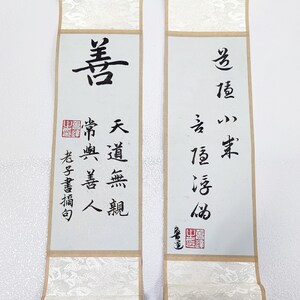 善
天道無親
常與善人
老子書摘句
道隱小成
言隱浮偽